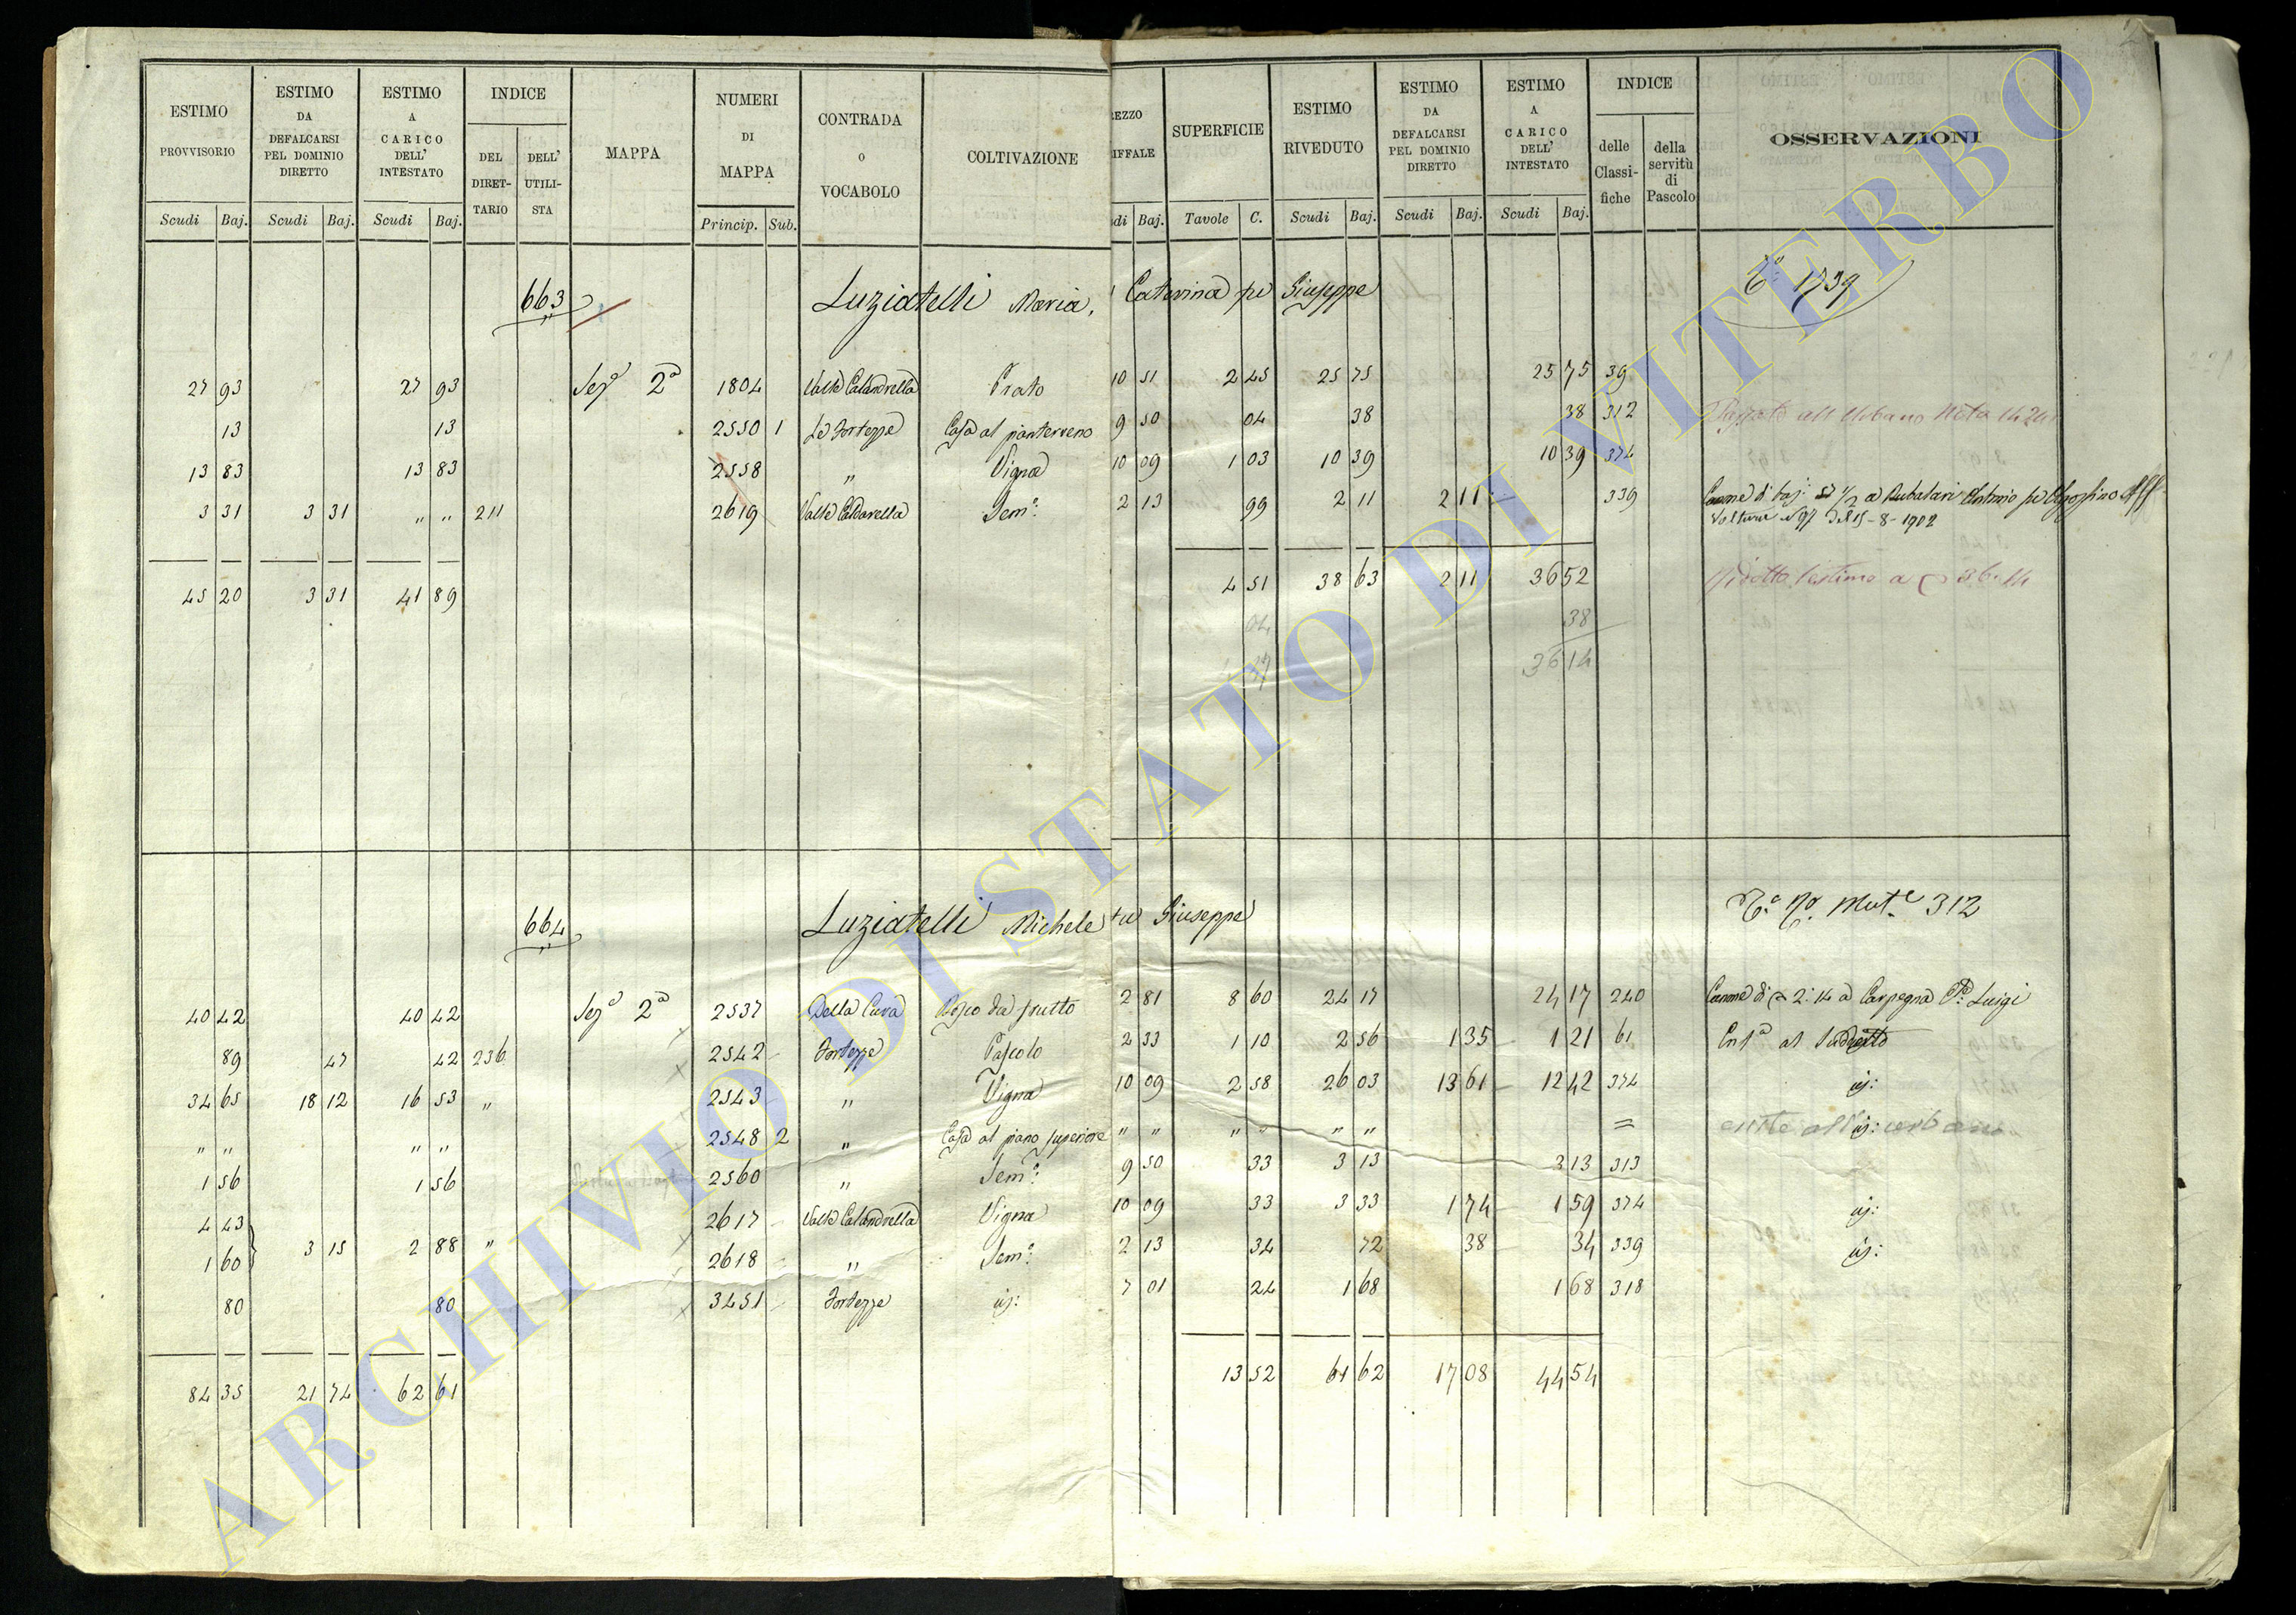 ESTIMO E PROVVISORIO Scudi Baj.
ESTIMO DA DEFALCARSI PEL DOMINIO DIRETTO Scudi Baj.
ESTIMO A CARICO DELL' INTESTATO Scudi Baj.
INDICE DEL DIRETTARIO DELL' UTILISTA
MAPPA
NUMERI DI MAPPA Princip. Sub.
CONTRADA O VOCABOLO
COLTIVAZIONE
REZZO IFFALE di Baj.
SUPERFICIE Tavole C.
ESTIMO RIVEDUTO Scudi Baj.
ESTIMO DA DEFALCARSI PEL DOMINIO DIRETTO Scudi Baj.
ESTIMO A CARICO DELL' INTESTATO Scudi Baj.
INDICE delle Classifiche della servitù di Pascolo
OSSERVAZIONI
663 Luziatelli Maria, Caterina fu Giuseppe 1739
27 93 27 93 Sez.a 2a 1804 Valle Calandrella Prato 10 51 2 45 25 75 25 75 39
13 13 2550 1 Le Fortezze Casa al pianterreno 9 50 04 38 38 312 Passato all Urbano Nota 1424
13 83 13 83 2558 " Vigna 10 09 1 03 10 39 10 39 374
3 31 3 31 " " 211 2619 Valle Caldarella Sem.o 2 13 99 2 11 2 11 339 Canone di baj. 51 1/2 a Antonio fu
Volture N 97 del 15-8-1902
45 20 3 31 41 89 4 51 38 63 2 11 36 52 Ridotto l'estimo a 36.14
04 38
47 36 14
664 Luziatelli Michele fu Giuseppe Mut.e 312
40 42 40 42 Sez.a 2a 2537 Della Cura Bosco da frutto 2 81 8 60 24 17 24 17 240 Canone di 2:14 a Carpegna Luigi
89 47 42 236 2542 Fortezze Pascolo 2 33 1 10 2 56 1 35 1 21 61 al Suddetto
34 65 18 12 16 53 " 2543 " Vigna 10 09 2 58 26 03 13 61 12 42 374 id:
" " " " 2548 2 " Casa al piano superiore " " " " " " = id: esiste all urbano
1 56 1 56 2560 " Sem.o 9 50 33 3 13 3 13 313
4 43 2617 Valle Calandrella Vigna 10 09 33 3 33 1 74 1 59 374 id:
1 60 3 15 2 88 " 2618 " Sem.o 2 13 34 72 38 34 339 id:
80 80 3451 Fortezze id: 7 01 24 1 68 1 68 318
84 35 21 74 62 61 13 52 61 62 17 08 44 54
ARCHIVIO DI STATO DI VITERBO